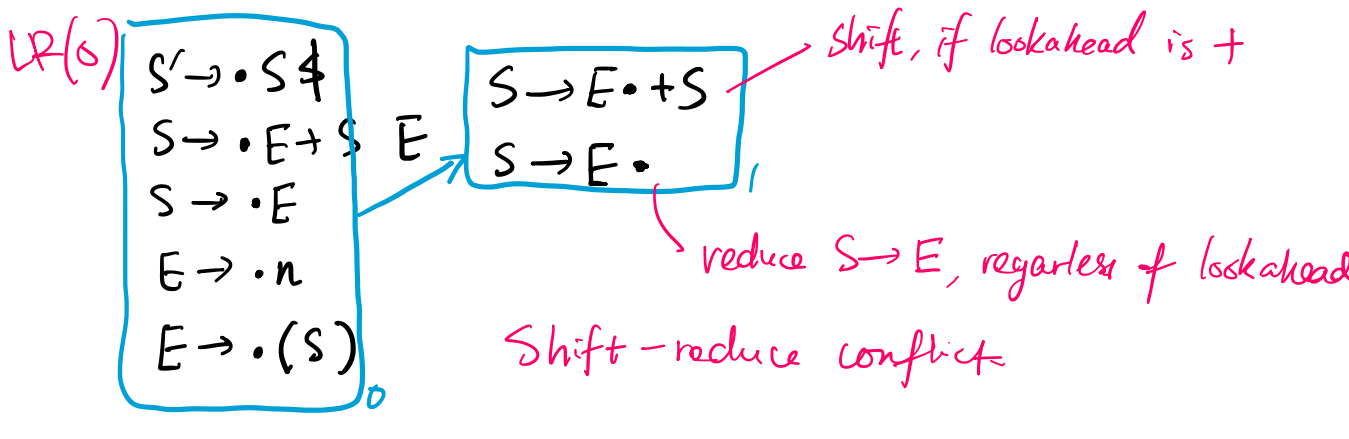 LR(0)
S' → · S $
S → · E + S
S → · E
E → · n
E → · (S)
0
E
S → E · + S
S → E ·
1
shift, if lookahead is +
reduce S → E, regarless of lookahead
Shift-reduce conflict